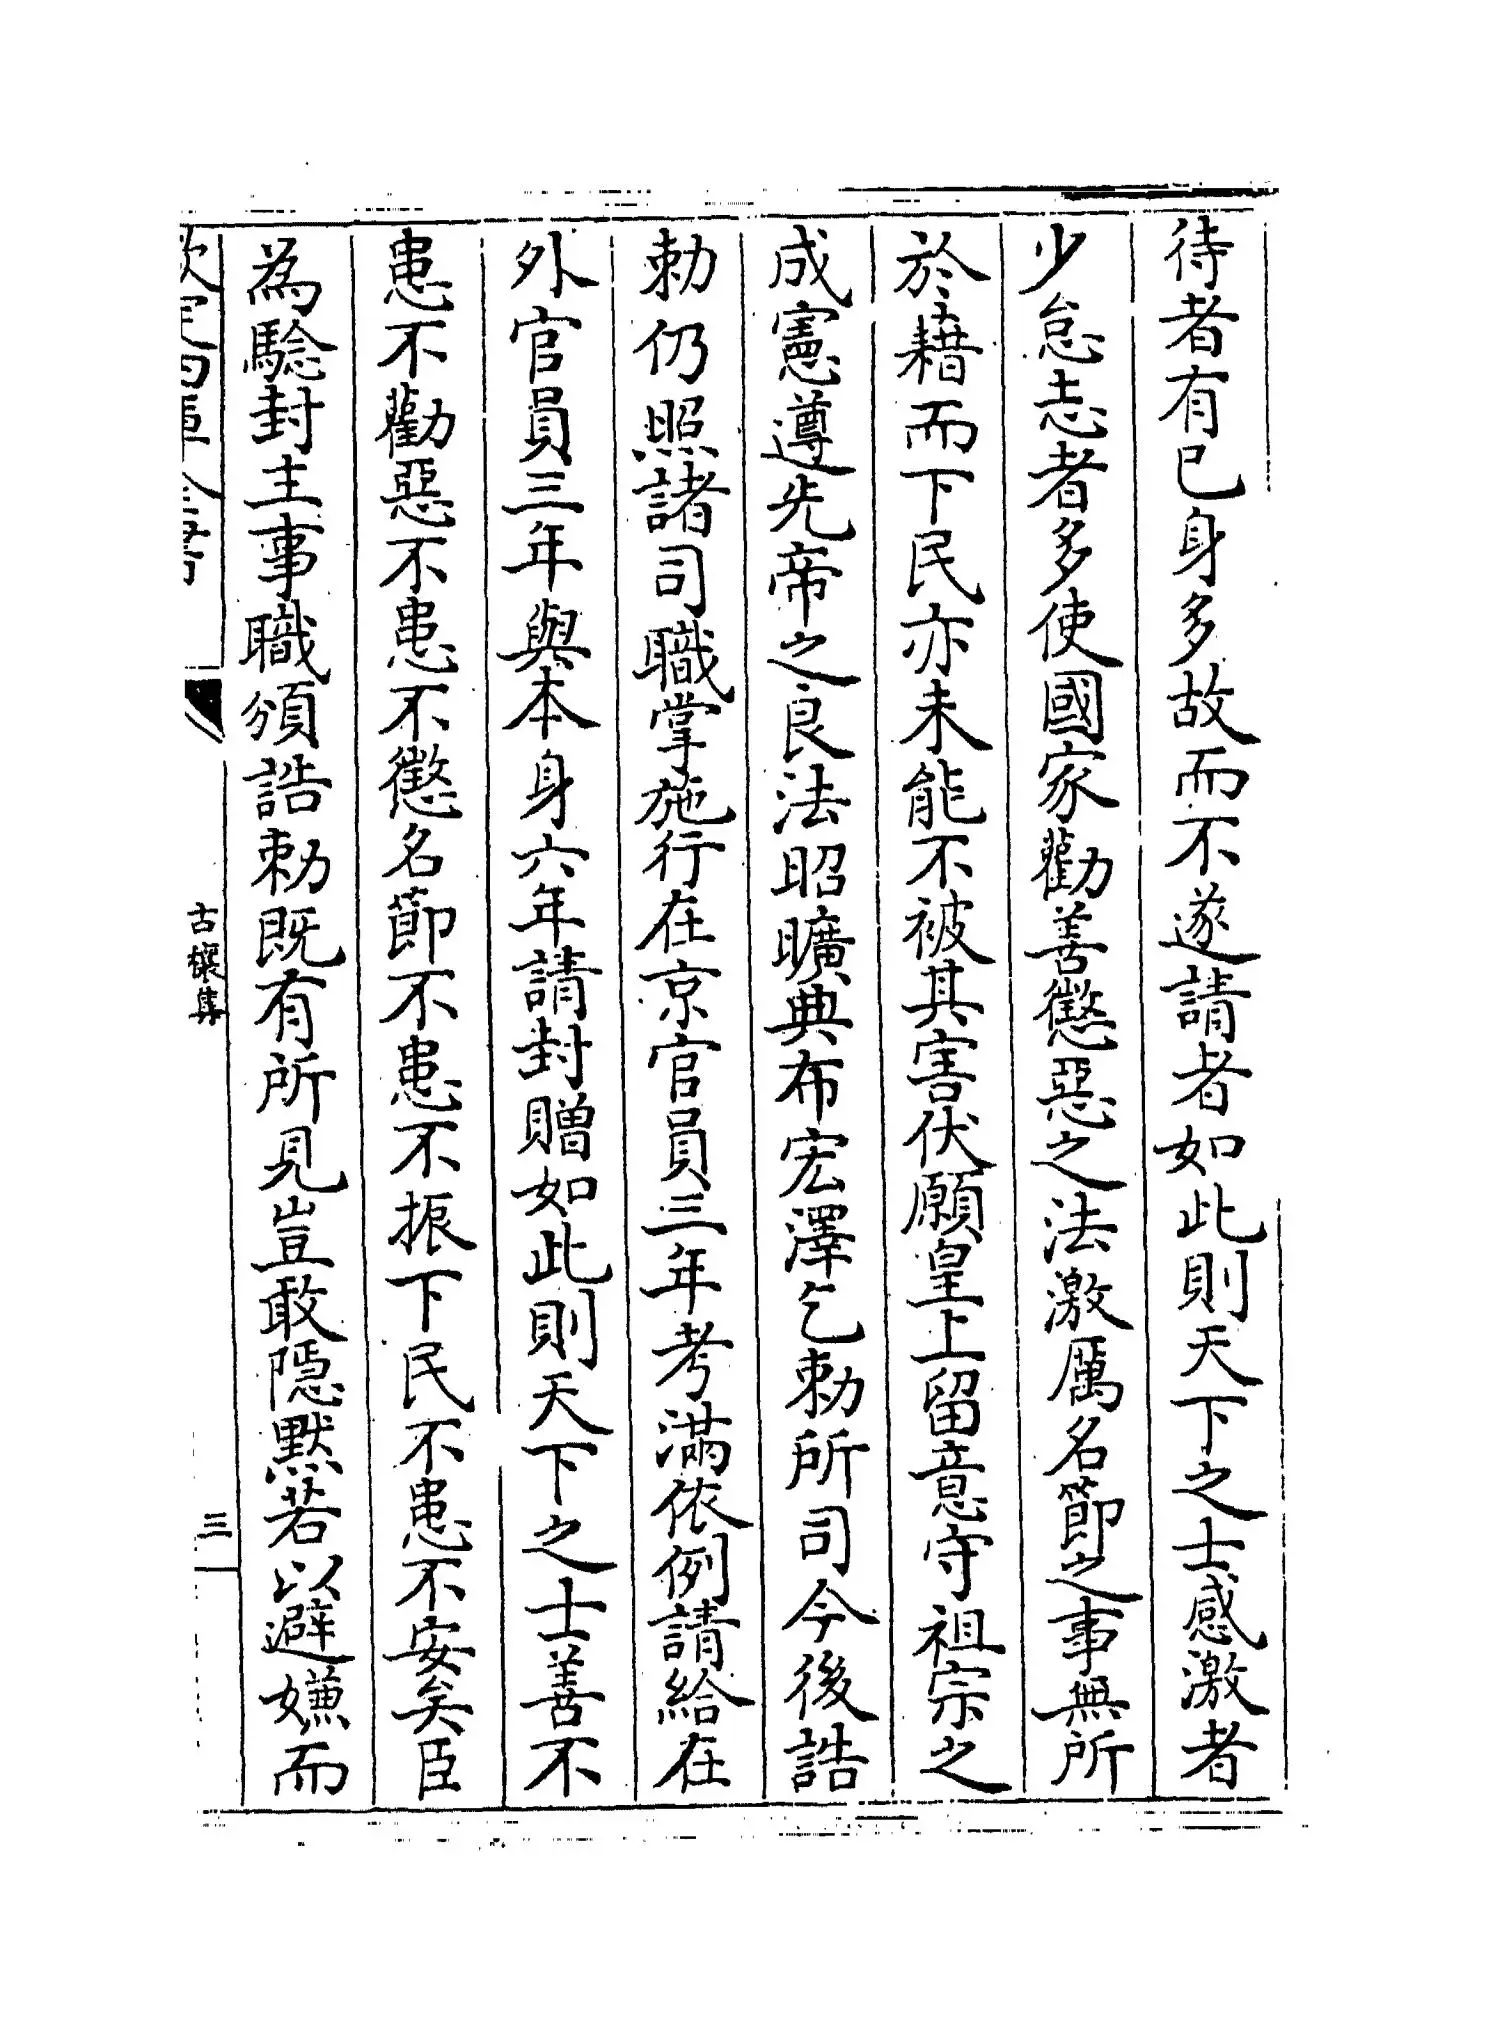 待者有已身多故而不遂請者如此則天下之士感激者
少怠志者多使國家勸善懲惡之法激厲名節之事無所
於藉而下民亦未能不被其害伏願皇上留意守祖宗之
成憲遵先帝之良法昭曠典布宏澤乞勅所司今後誥
勅仍照諸司職掌施行在京官員三年考滿依例請給在
外官員三年與本身六年請封贈如此則天下之士善不
患不勸惡不患不懲名節不患不振下民不患不安矣臣
為驗封主事職頒誥勅既有所見豈敢隱默若以避嫌而
欽定四庫全書
古穰集
三